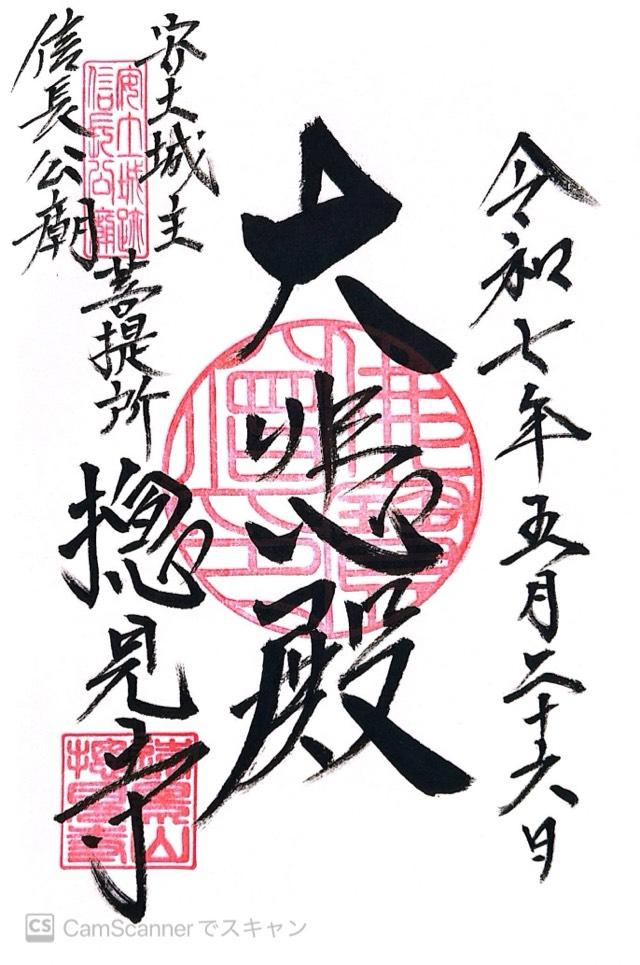 令和七年五月二十六日
大悲殿
安土城主
信長公廟
菩提所
摠見寺
安土城跡
信長公廟
CS CamScannerでスキャン